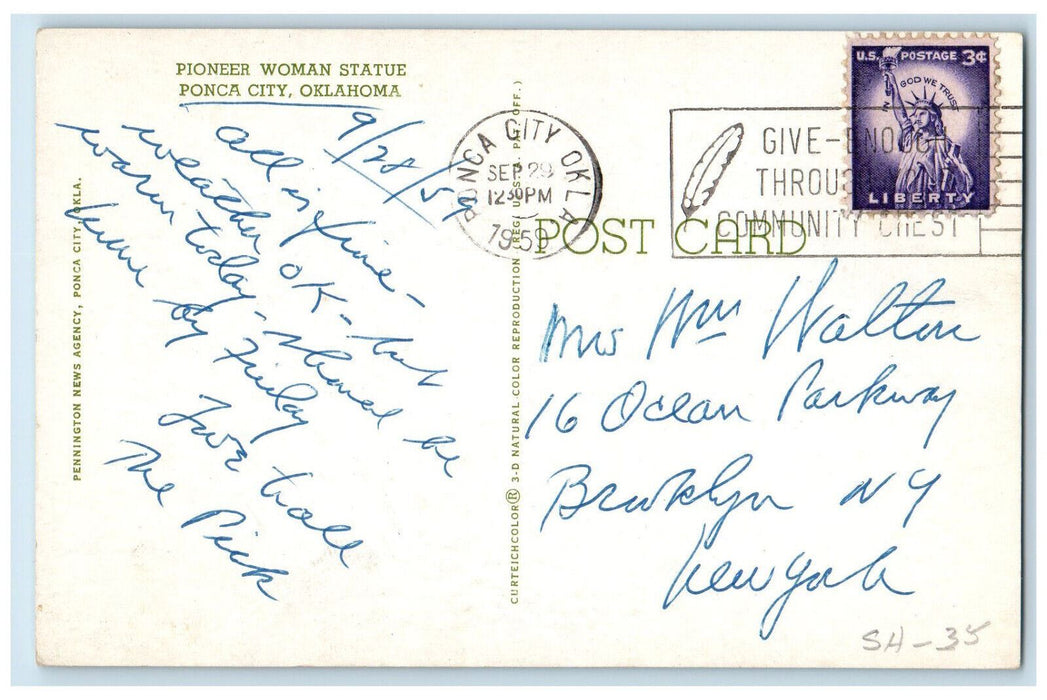 PIONEER WOMAN STATUE
PONCA CITY, OKLAHOMA
9/28/59
All is fine -
weather OK - but
warm today - should be
home by Friday
Love to all
The Pick
PENNINGTON NEWS AGENCY, PONCA CITY, OKLA.
CURTEICHCOLOR® 3-D NATURAL COLOR REPRODUCTION (REG. U.S.A. PAT. OFF.)
PONCA CITY OKLA
SEP 29
12 30 PM
1959
GIVE-ENOUGH
THROU
COMMUNITY CHEST
U.S. POSTAGE 3¢
IN GOD WE TRUST
LIBERTY
POST CARD
Mrs Wm Walton
16 Ocean Parkway
Brooklyn NY
New York
SH-35